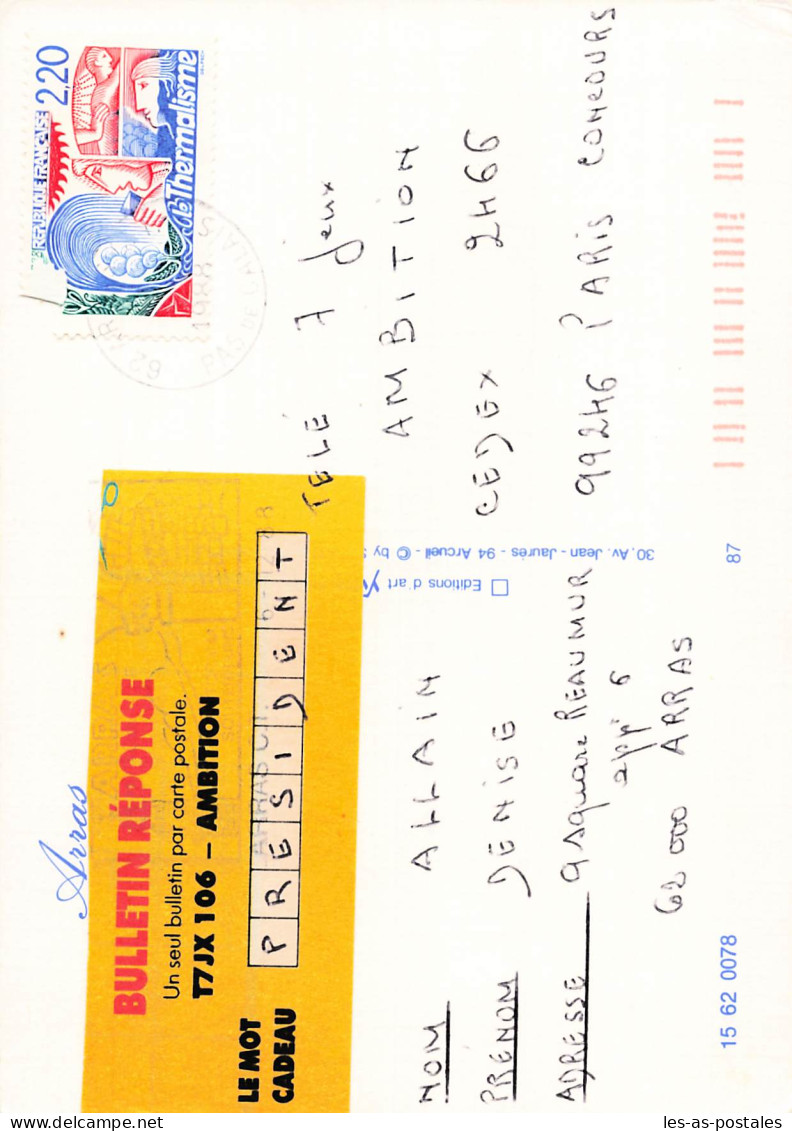 Arras
BULLETIN RÉPONSE
Un seul bulletin par carte postale.
T7JX 106 – AMBITION
LE MOT
CADEAU
PRESIDENT
NOM ALLAIN
PRENOM DENISE
ADRESSE 9 square REAUMUR
appt 6
62 000 ARRAS
15 62 0078
REPUBLIQUE FRANÇAISE 2,20
Le Thermalisme
1988
PAS DE CALAIS
TELÉ 7 Jeux
AMBITION
CEDEX 2466
99246 PARIS CONCOURS
Editions d'art
30, Av. Jean - Jaurès - 94 Arcueil - © by
87
les-as-postales